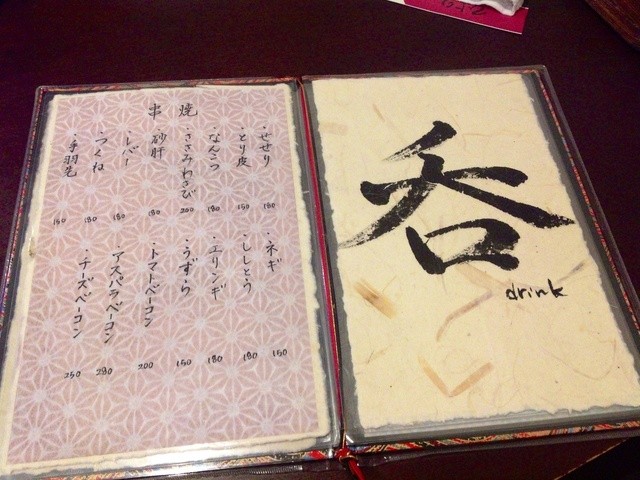 串焼
・せせり 180
・とり皮 150
・なんこつ 180
・ささみわさび 200
・砂肝 180
・レバー 180
・つくね 180
・手羽先 150
・ネギ 150
・ししとう 180
・エリンギ 180
・うずら 150
・トマトベーコン 200
・アスパラベーコン 290
・チーズベーコン 250
呑
drink